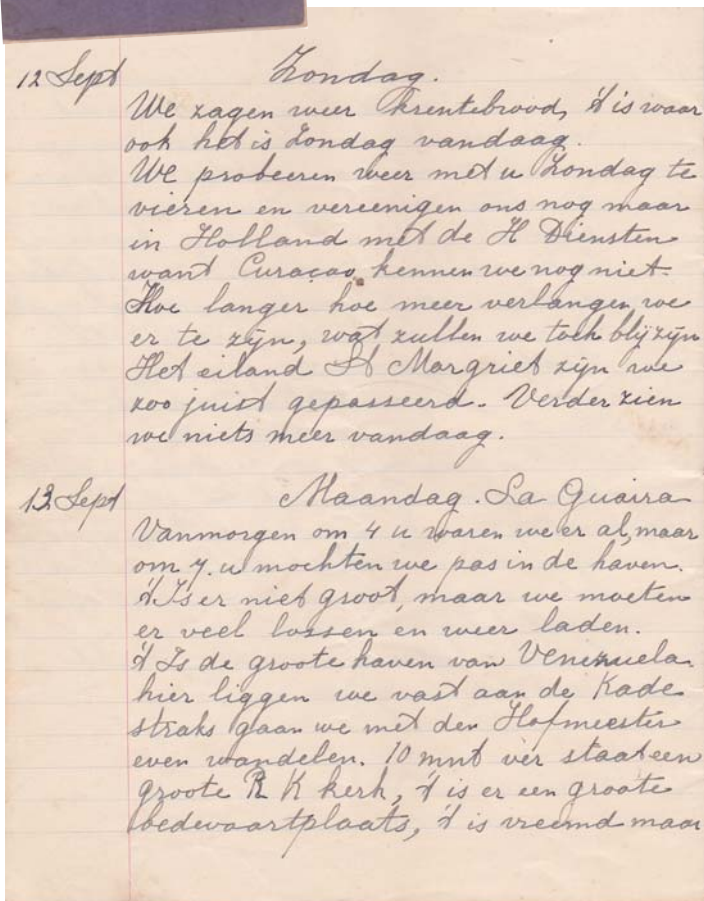 12 Sept Zondag.
We zagen weer Krentebrood, 't is waar
ook het is Zondag vandaag.
We probeeren weer met u Zondag te
vieren en vereenigen ons nog maar
in Holland met de H Diensten
want Curaçao kennen we nog niet.
Hoe langer hoe meer verlangen we
er te zijn, wat zullen we toch blij zijn
Het eiland St Margriet zijn we
zoo juist gepasseerd. Verder zien
we niets meer vandaag.
13 Sept Maandag. La Guaira
Vanmorgen om 4 u waren we er al, maar
om 7. u mochten we pas in de haven.
't Is er niet groot, maar we moeten
er veel lossen en weer laden.
't Is de groote haven van Venezuela.
hier liggen we vast aan de Kade
straks gaan we met den Hofmeester
even wandelen. 10 mnt ver staat een
groote R K kerk, 't is er een groote
bedevaartplaats, 't is vreemd maar